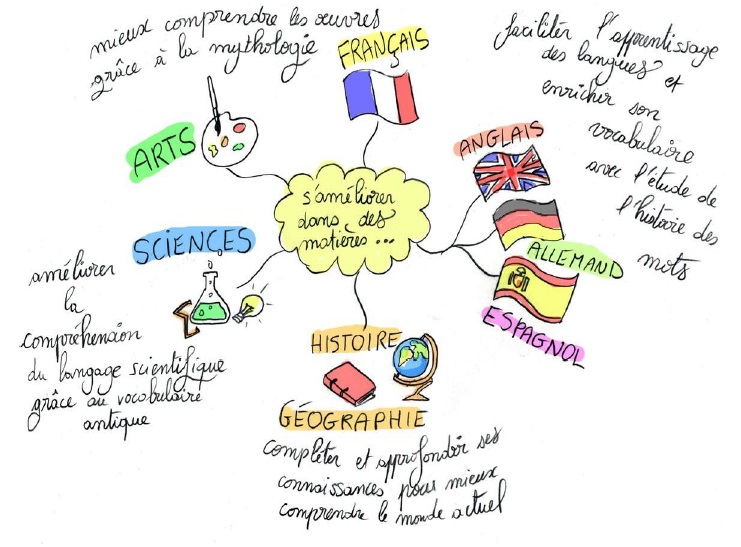 mieux comprendre les œuvres
grâce à la mythologie
FRANÇAIS
ARTS
faciliter l'apprentissage
des langues et
enrichir son
vocabulaire
avec l'étude de
l'histoire des
mots
ANGLAIS
ALLEMAND
ESPAGNOL
s'améliorer
dans des
matières...
SCIENCES
améliorer
la
compréhension
du langage scientifique
grâce au vocabulaire
antique
HISTOIRE
GÉOGRAPHIE
compléter et approfondir ses
connaissances pour mieux
comprendre le monde actuel